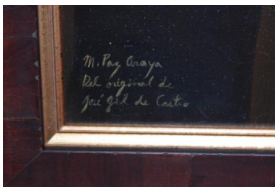 M. Paz Araya
Del original de
José Gil de Castro